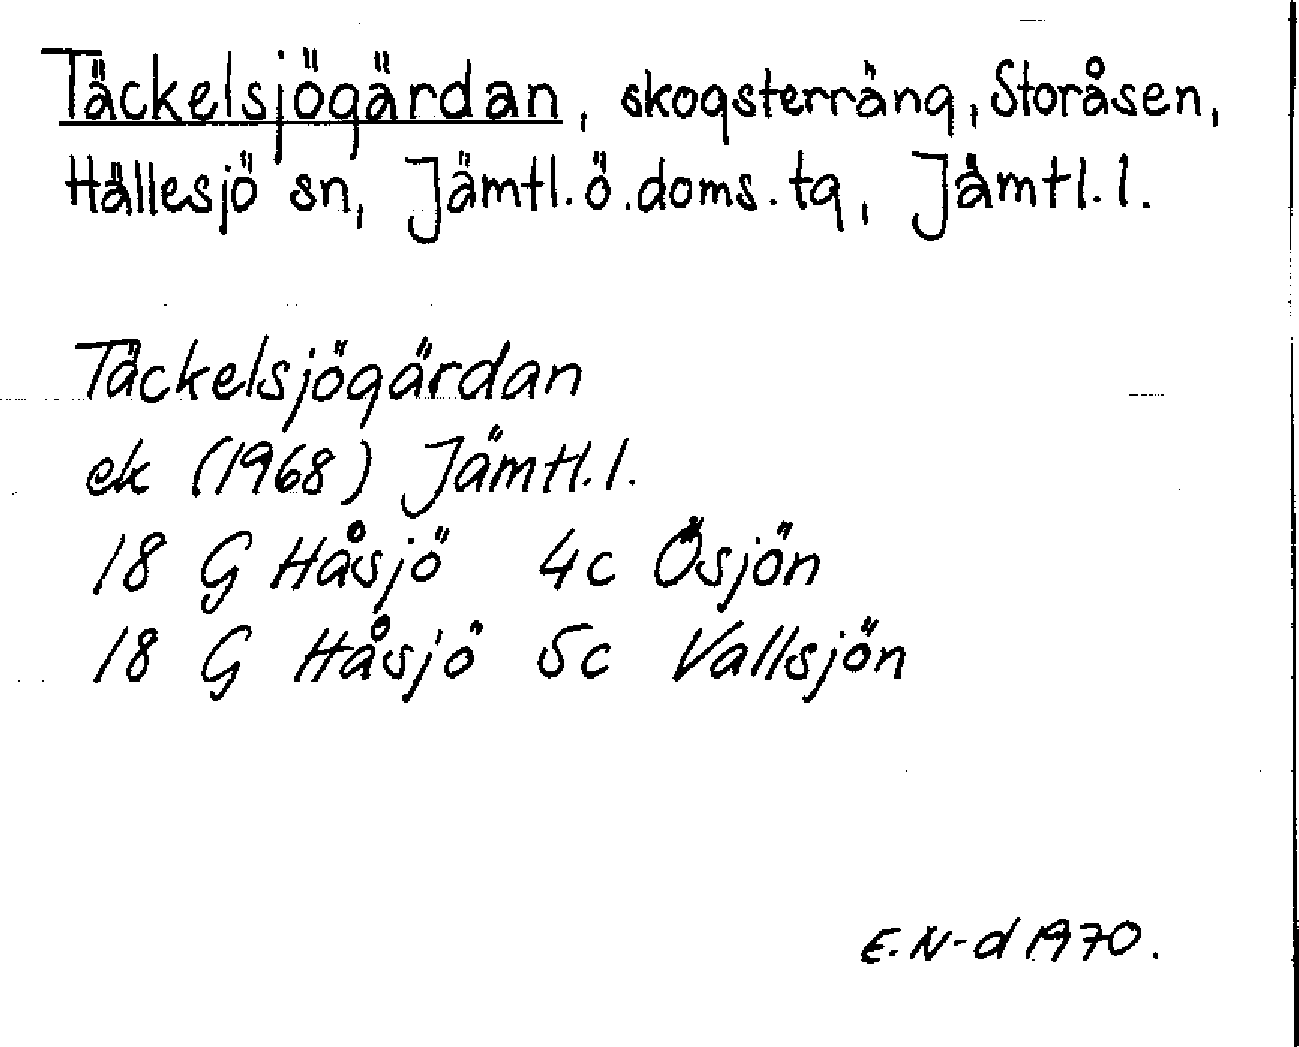 Täckelsjögärdan, skogsterräng, Storåsen,
Hällesjö sn, Jämtl. ö. doms. tg, Jämtl. l.
Täckelsjögärdan
ek (1968) Jämtl. l.
18 G Håsjö 4c Ösjön
18 G Håsjö 5c Vallsjön
E. N-d 1970.